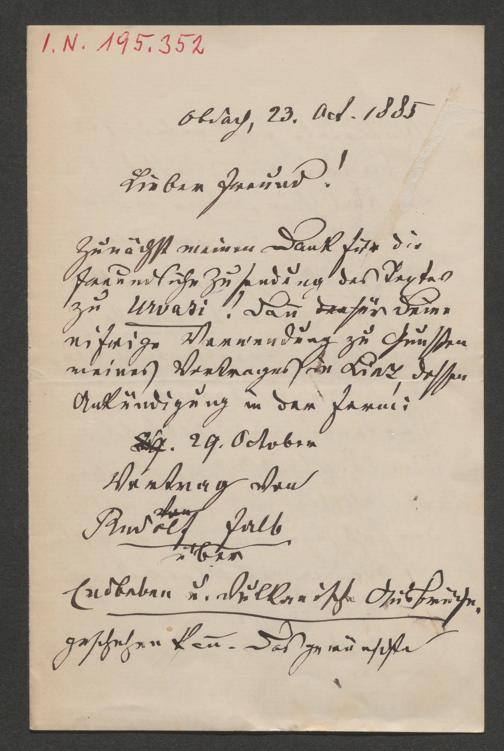 I.N. 195.352
Obdach, 23. Oct. 1885
Lieber Freund!
Zunächst meinen Dank für die
freundliche Zusendung des Textes
zu Urvasi! Dann für Deine
eifrige Verwendung zu Gunsten
meines Vortrages in Linz, dessen
Ankündigung in der Form:
29. October
Vortrag von
Rudolf Falb
über
Erdbeben u. vulkanische Ausbrüche.
geschehen kann. Das gewünschte